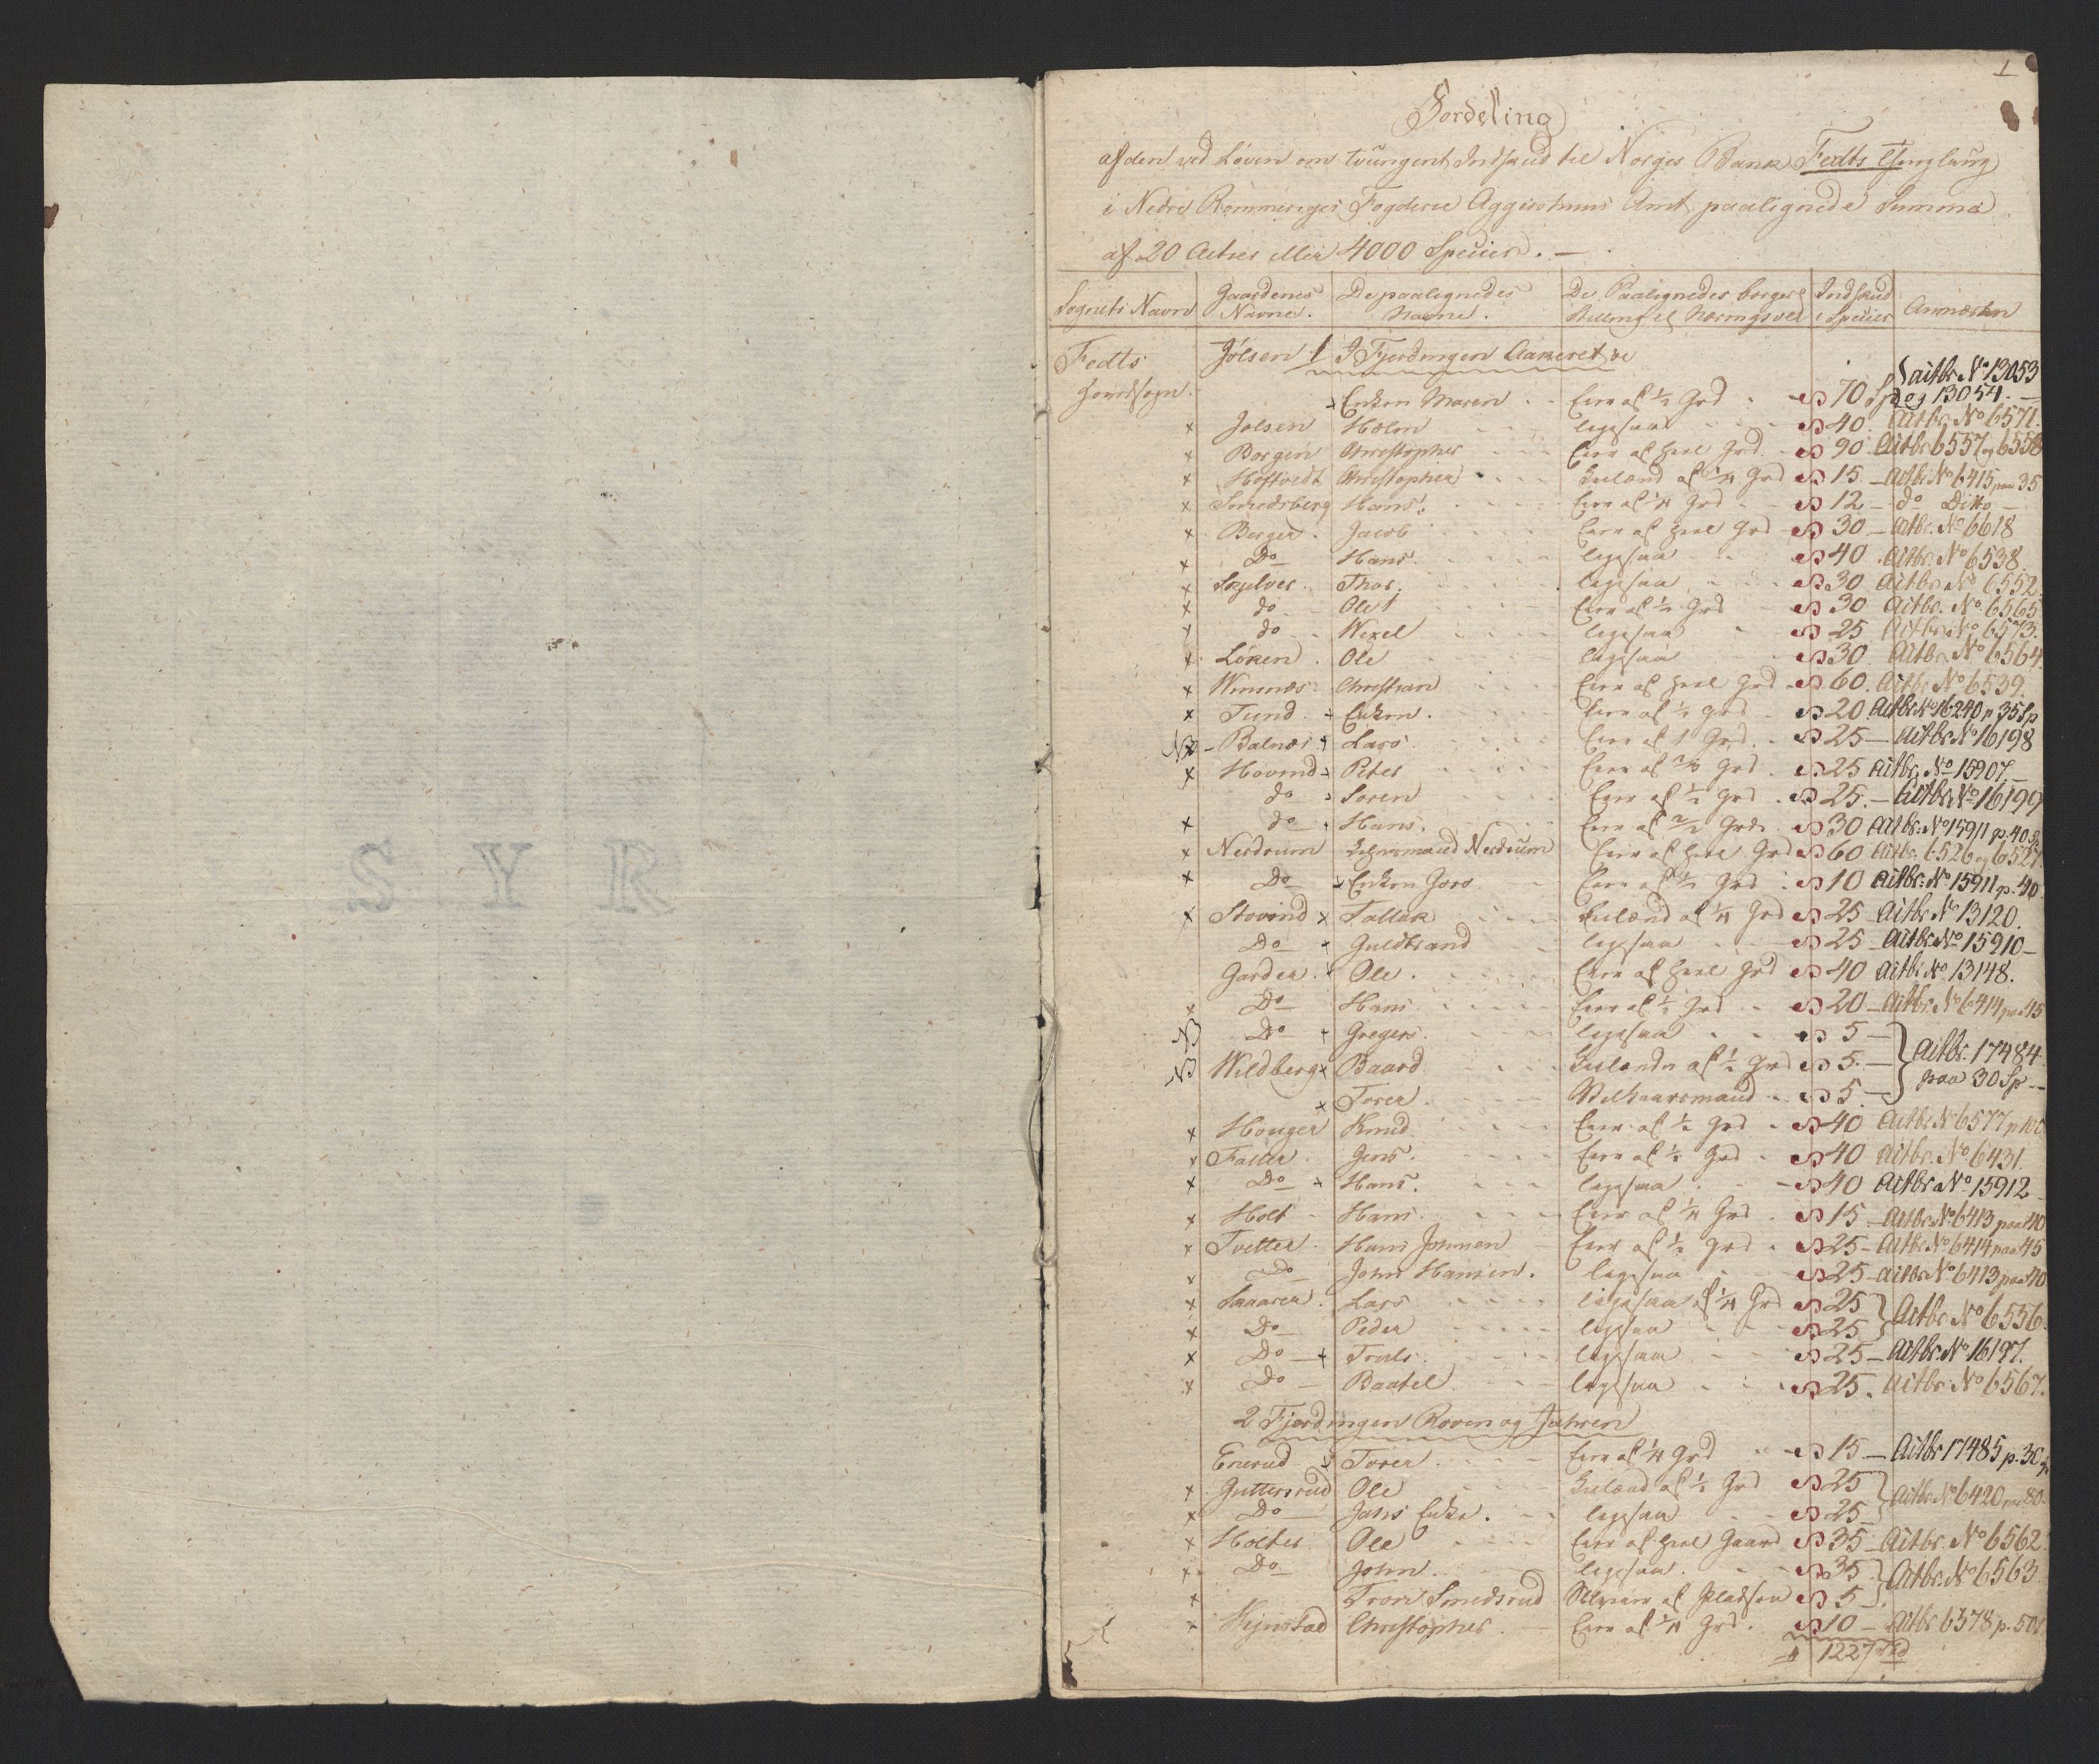 1
Fordeling
af den ved Loven om tvungent Indskud til Norges Bank Fedts Tinglaug
i Nedre Rommeriges Fogderie Aggershuus Amt paalignede Summa
af 20 Actier eller 4000 Specier. —
Sognets Navn Gaardenes Navne. De paalignedes Navne. De Paalignedes borgerl Stilling el Næringsvei Indskud i Specier Anmærkn
Fedts Jølsen 1 I Fjerdingen Aakeret
hovedsogn. Enken Maren Eier af ½ Grd 70 Sp aitbr. No 13053 og 13054. —
x Jølsen Holm ligesaa 40. Aitbr. No 6571.
x Borgen Christopher Eier af heel Grd 90 Aitbr 6557 og 6558
x Hoftvedt Christopher Leilænd af ¼ Grd 15. — Aitbr No 6415 paa 35
x Smedsberg Hans. Eier af ¼ Grd 12 — do Ditto —
x Berger. Jacob Eier af heel Grd 30 — Aitbr. No 6618
x Do Hans. ligesaa 40 Aitbr. No 6538.
x Skjelver Thor. ligesaa 30 Aitbr. No 6552.
x do Ole 1 Eier af ½ Grd 30 Aitbr. No 6565
x do Wexel ligesaa 25 Aitbr. No 6573.
x Løken. Ole ligesaa 30 Aitbr. No 6564
x Winnes. Christian Eier af heel Grd 60. Aitbr No 6539.
x Tund. Enken. Eier af ½ Grd 20 Aitbr No 16240 p 35 Sp
NB Balnæs x Lars Eier af 1 Grd. 25 — Aitbr No 16198
x Hovind x Peter Eier af Grd. 25 Aitbr. No 15907. —
do Soren Eier af ½ Grd 25. — Aitbr No 16199
x do Hans. Eier af Grd 30 Aitbr. No 15911 p. 40 Sp
x Nerdrum Lehnsmand Nerdrum Eier af heel Grd 60 Aitbr. 6526 og 6527.
x Do x Enken Eier af ½ Grd 10 Aitbr. No 15911 p. 40
x Stovind x Tallak Leilænd af ¼ Grd 25 Aitbr No 13120.
Do x Guldbrand ligesaa 25 — Aitbr. No 15910 —
Garder. x Ole. Eier af heel Grd 40 Aitbr. No 13148.
x Do Hans Eier af ½ Grd 20 — Aitbr. No 6414 paa 45
NB Do x Gregers. ligesaa 5 —
NB Wildberg x Baard Leilænd af ½ Grd 5. — Aitbr. 17484
x Torer Velhaarsmand 5. — paa 30 Sp —
x Houger Knud Eier af ½ Grd 40 Aitbr. No 6577 p 100
x Faller. Jens. Eier af ½ Grd 40 Aitbr. No 6431.
x Do x Hans. ligesaa 40 Aitbr No 15912
x Holt Hans. Eier af ¼ Grd 15 — Aitbr. No 6413 paa 40
x Tvetter. Hans Johnsen Eier af ½ Grd 25 — Aitbr. No 6414 paa 45
x Do John Hansen. ligesaa 25 — Aitbr No 6413 paa 40
x Smaarer. Lars ligesaa af ¼ Grd 25 Aitbr No 6536.
x Do Peder ligesaa 25
x Do x Troels. ligesaa 25 — Aitbr. No 16197.
x Do Baatel ligesaa 25. Aitbr. No 6567.
2 Fjerdingen Roven og Jahren
Enerud. x Torer Eier af ¼ Grd 15 — Aitbr 17485 p. 30 Sp
x Guttersrud Ole Leilænd af ½ Grd 25 Aitbr No 6420 paa 80
x Do Jahrs Enke. ligesaa 25
x Holter Ole Eier af heel Gaard 35 — Aitbr. No 6562.
x Do John. ligesaa. 35 Aitbr. No 6563
x Tron Smedsrud af Pladsen 5
x Hejnstad Christopher. Eier af ¼ Grd. 10 — Aitbr 6578 p. 50
1227